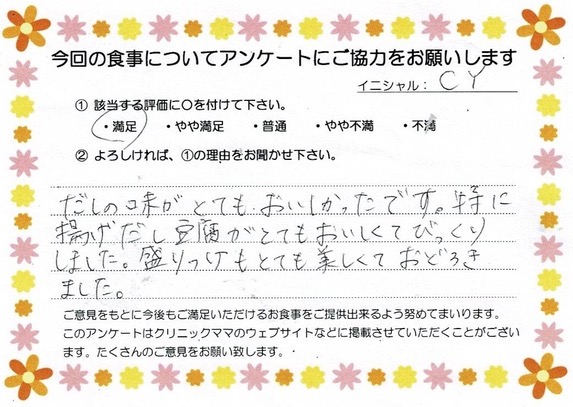 今回の食事についてアンケートにご協力をお願いします
イニシャル： CY
① 該当する評価に〇を付けて下さい。
・満足 ・やや満足 ・普通 ・やや不満 ・不満
② よろしければ、①の理由をお聞かせ下さい。
だしの味がとてもおいしかったです。特に
揚げだし豆腐がとてもおいしくてびっくり
しました。盛りつけもとても美しくておどろき
ました。
ご意見をもとに今後もご満足いただけるお食事をご提供出来るよう努めてまいります。
このアンケートはクリニックママのウェブサイトなどに掲載させていただくことがござい
ます。たくさんのご意見をお願い致します。